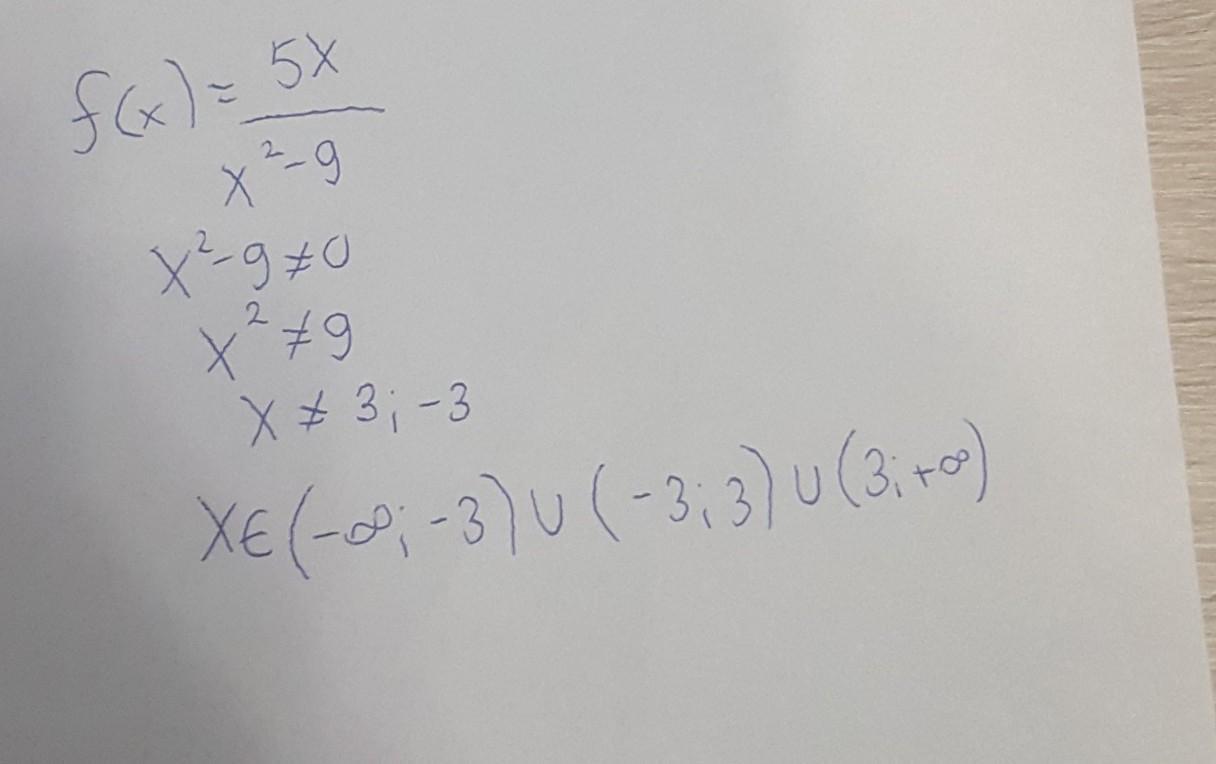 f(x) = 5x / x² - 9
x² - 9 ≠ 0
x² ≠ 9
x ≠ 3; -3
x ∈ (-∞; -3) ∪ (-3; 3) ∪ (3; +∞)